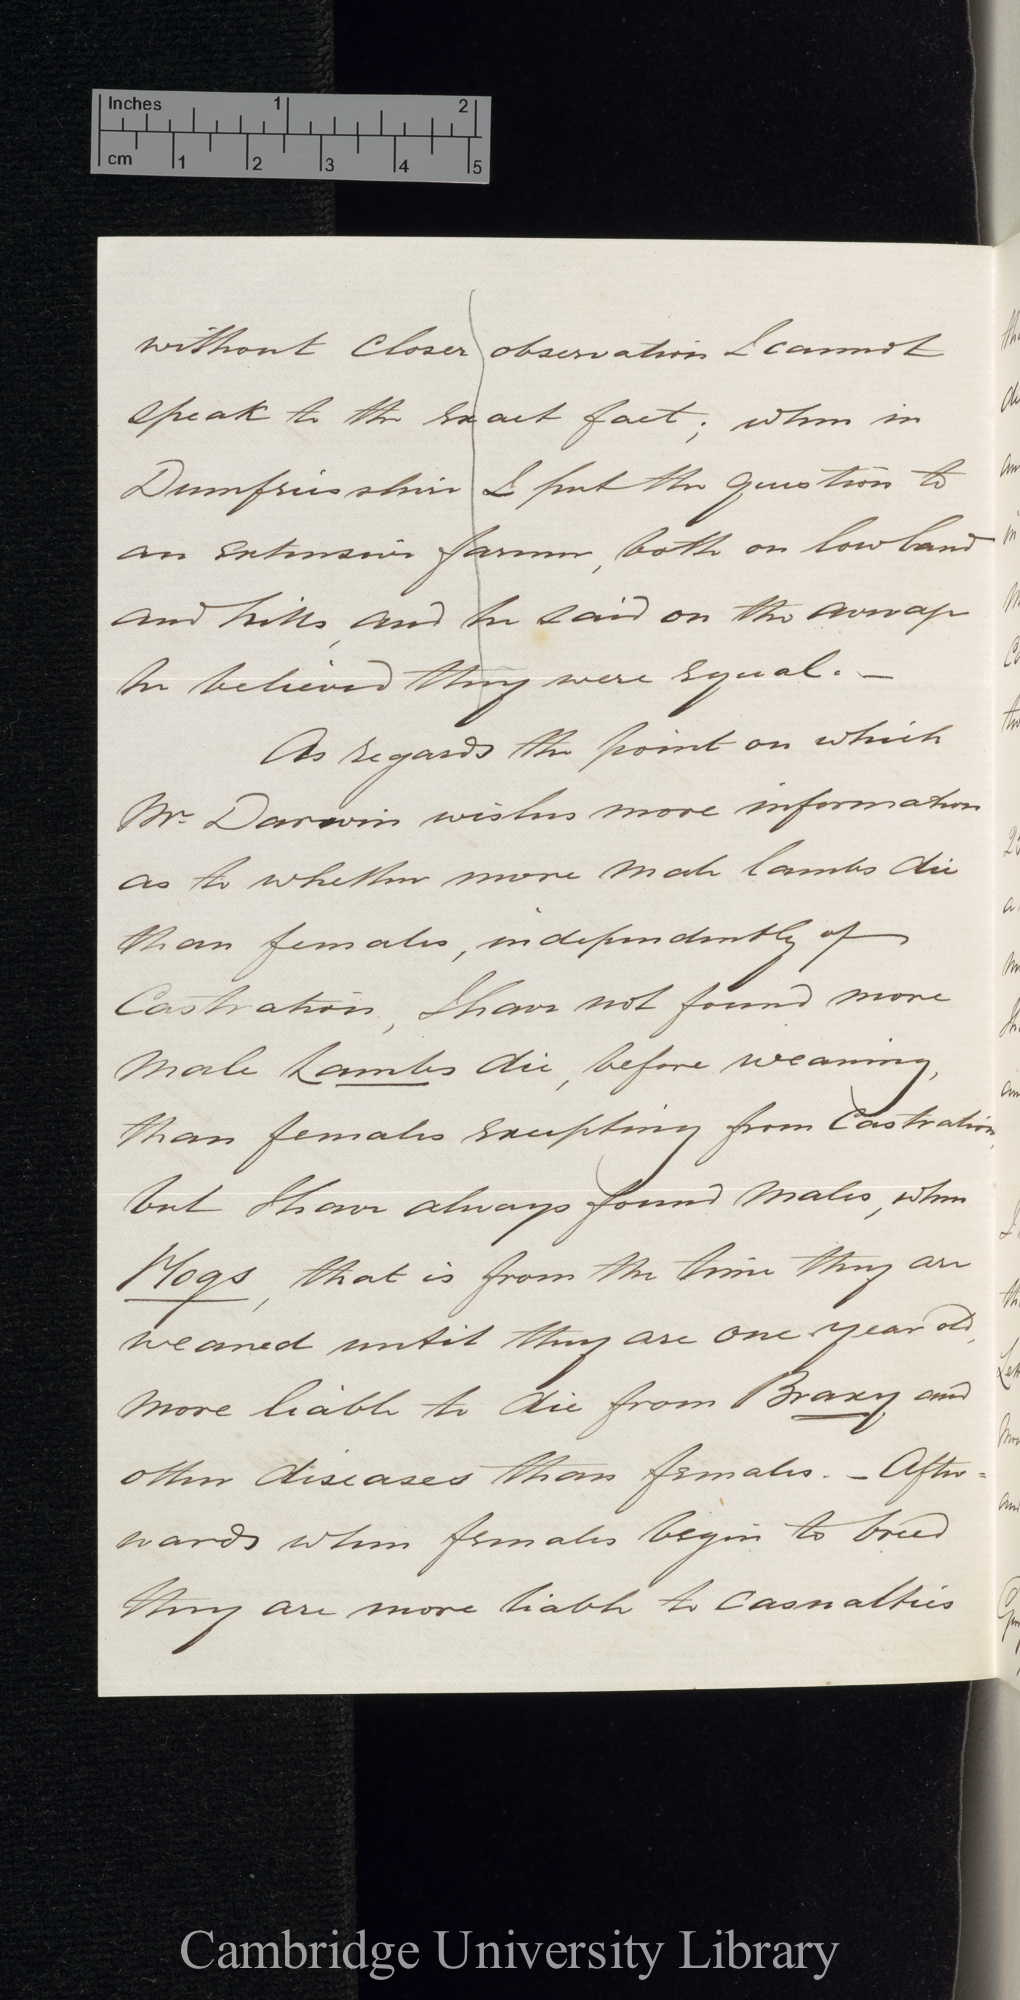 Inches 1 2
cm 1 2 3 4 5
without closer observation I cannot
speak to the exact fact; when in
Dumfriesshire I put the question to
an extensive farmer, both on low land
and hills, and he said on the average
he believed they were equal. —
As regards the point on which
Mr. Darwin wishes more information
as to whether more male lambs die
than females, independently of
Castration, I have not found more
male Lambs die, before weaning,
than females excepting from Castration,
but I have always found males, when
Hogs, that is from the time they are
weaned until they are one year old,
more liable to die from Braxy and
other diseases than females. — After=
wards when females begin to breed
they are more liable to casualties
Cambridge University Library